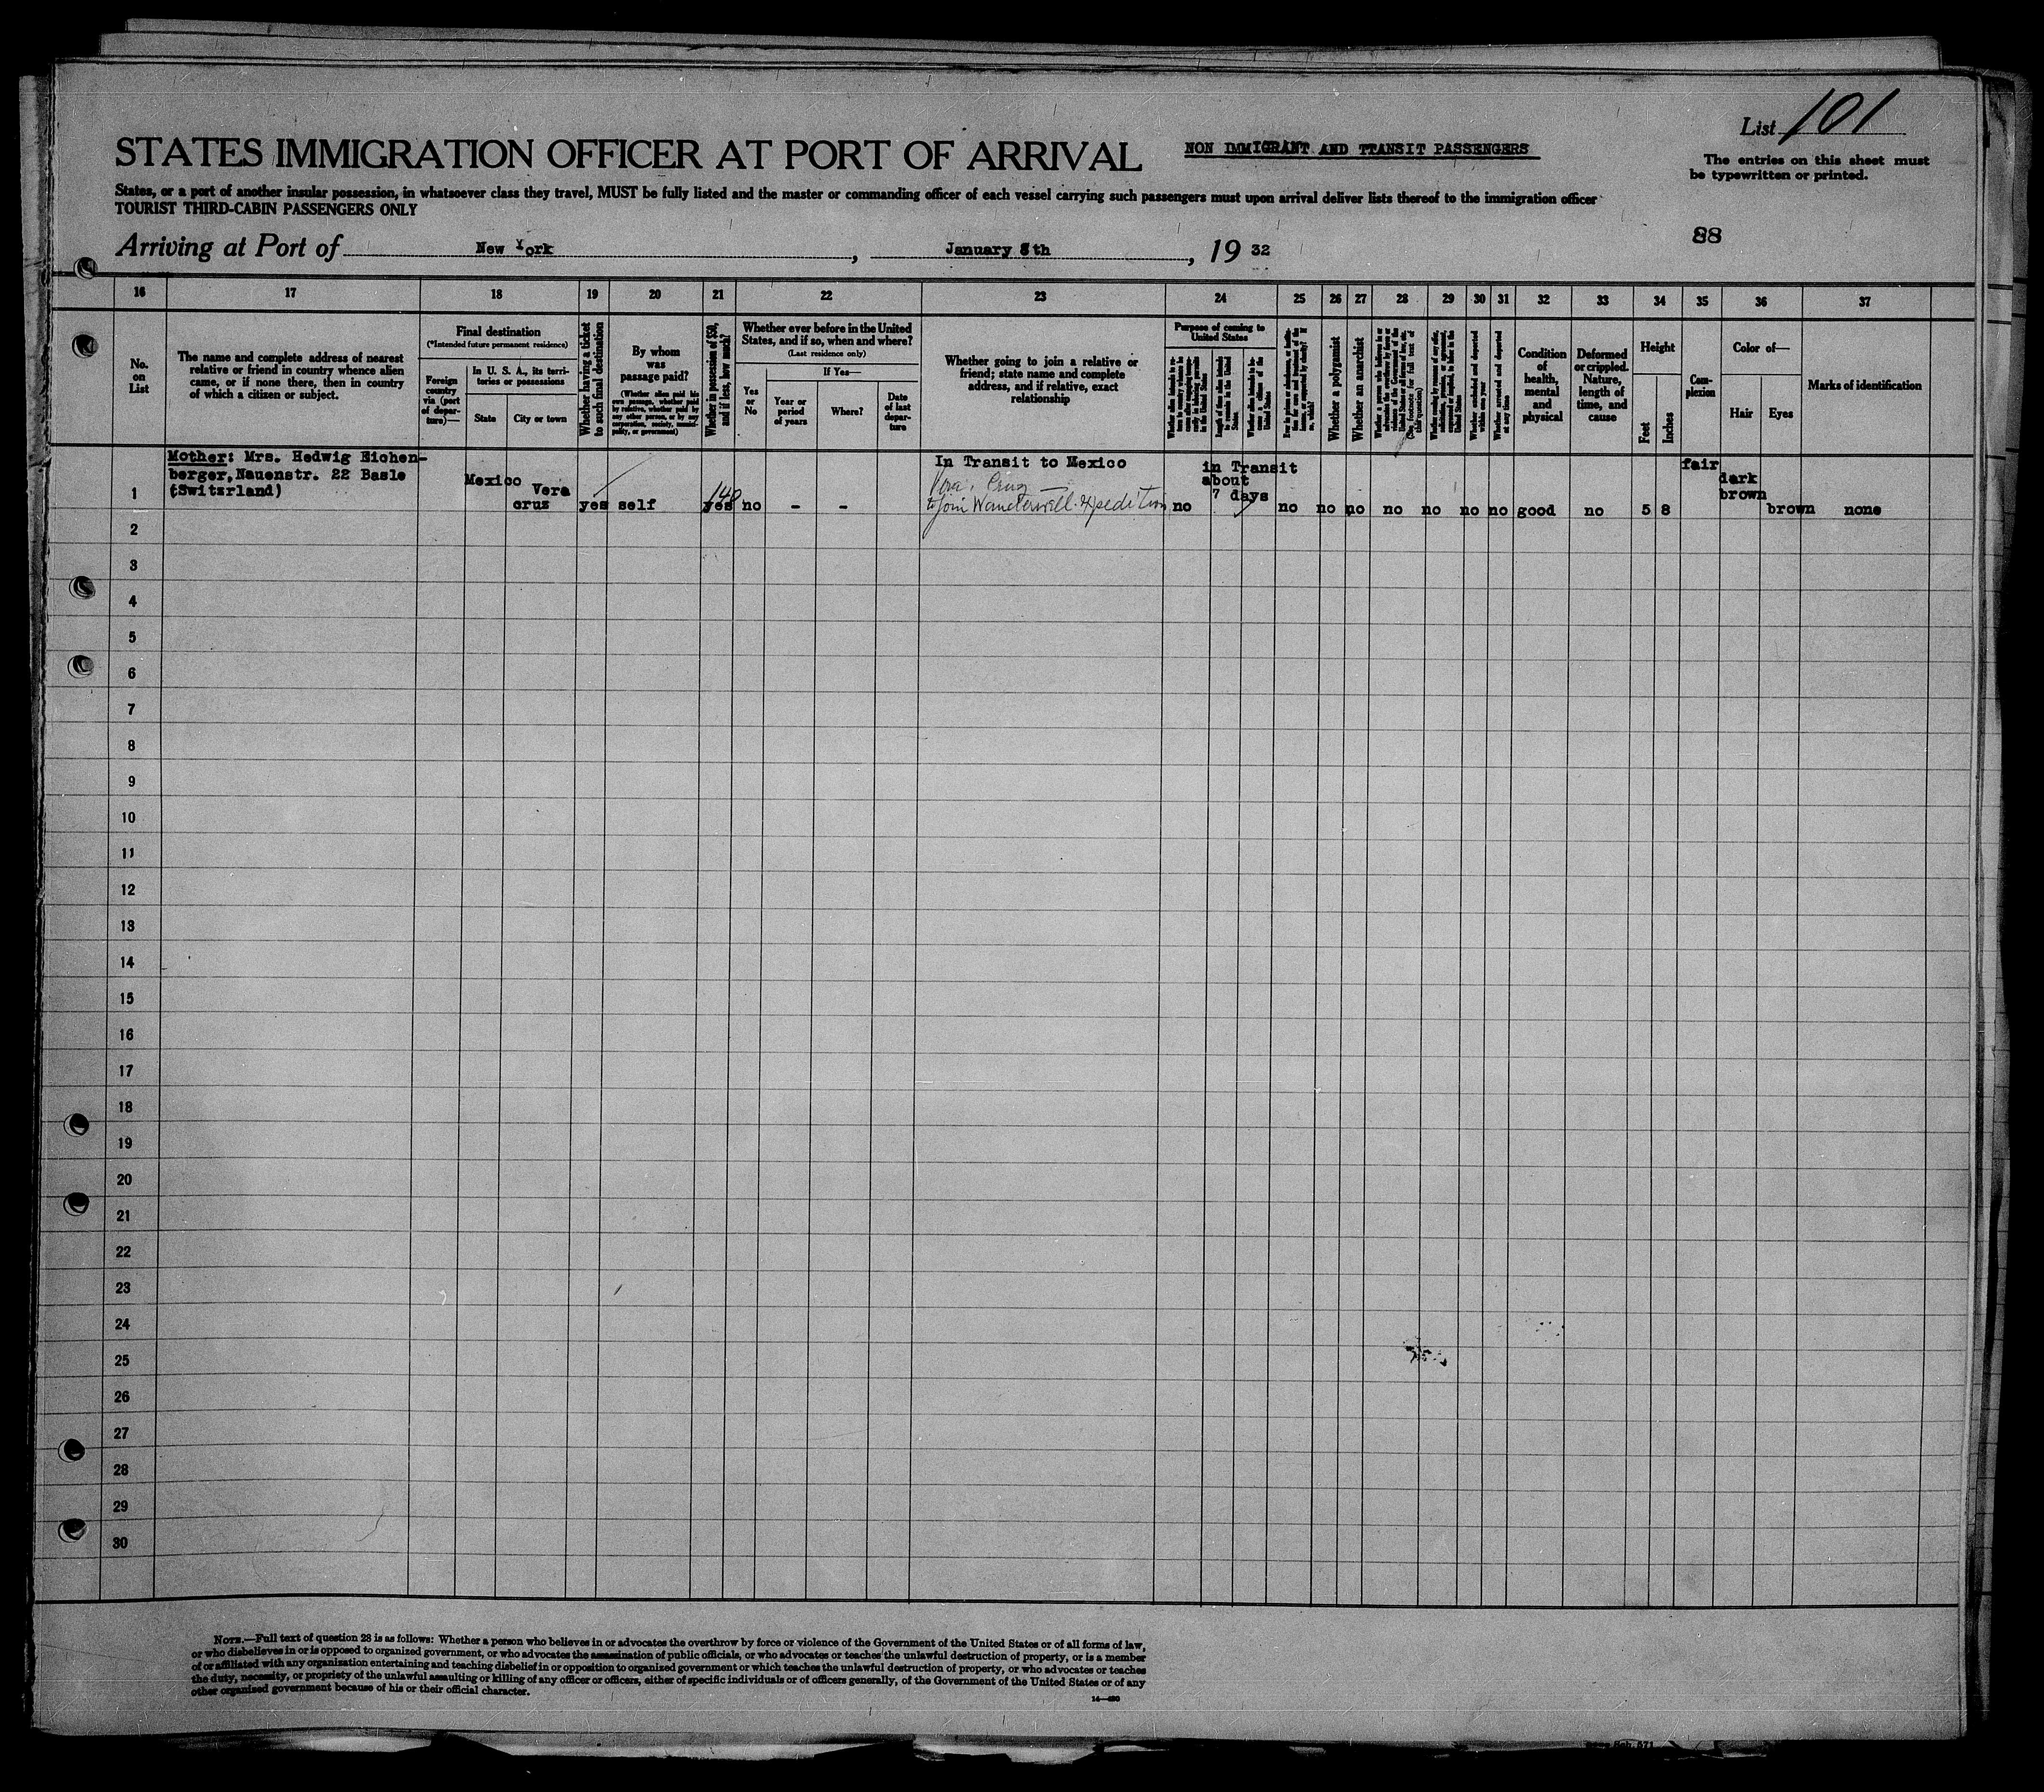 List 101
STATES IMMIGRATION OFFICER AT PORT OF ARRIVAL
NON IMMIGRANT AND TTANSIT PASSENGERS
The entries on this sheet must
be typewritten or printed.
States, or a port of another insular possession, in whatsoever class they travel, MUST be fully listed and the master or commanding officer of each vessel carrying such passengers must upon arrival deliver lists thereof to the immigration officer
TOURIST THIRD-CABIN PASSENGERS ONLY
88
Arriving at Port of New York, January 8th, 19 32
16 17 18 19 20 21 22 23 24 25 26 27 28 29 30 31 32 33 34 35 36 37
No.
on
List
The name and complete address of nearest
relative or friend in country whence alien
came, or if none there, then in country
of which a citizen or subject.
Final destination
(*Intended future permanent residence)
Foreign
country
via (port
of depar-
ture)—
In U. S. A., its terri-
tories or possessions
State
City or town
Whether having a ticket
to such final destination
By whom
was
passage paid?
(Whether alien paid his
own passage, whether paid
by relative, whether paid by
any other person, or by any
corporation, society, munici-
pality, or government)
Whether in possession of $50,
and if less, how much?
Whether ever before in the United
States, and if so, when and where?
(Last residence only)
Yes
or
No
If Yes—
Year or
period
of years
Where?
Date
of last
depar-
ture
Whether going to join a relative or
friend; state name and complete
address, and if relative, exact
relationship
Purpose of coming to
United States
Whether a polygamist
Whether an anarchist
Whether arrested and deported
at any time
Condition
of
health,
mental
and
physical
Deformed
or crippled.
Nature,
length of
time, and
cause
Height
Feet
Inches
Com-
plexion
Color of—
Hair
Eyes
Marks of identification
Mother: Mrs. Hedwig Eichen-
berger, Nauenstr. 22 Basle
(Switzrland)
Mexico
Vera
cruz
yes
self
148
yes
no
-
-
In Transit to Mexico
Vera Cruz
to join Wanderwell Expedition
no
in Transit
about
7 days
no
no
no
no
no
no
no
good
no
5
8
fair
dark
brown
brown
none
1
2
3
4
5
6
7
8
9
10
11
12
13
14
15
16
17
18
19
20
21
22
23
24
25
26
27
28
29
30
NOTE.—Full text of question 28 is as follows: Whether a person who believes in or advocates the overthrow by force or violence of the Government of the United States or of all forms of law,
or who disbelieves in or is opposed to organized government, or who advocates the assassination of public officials, or who advocates or teaches the unlawful destruction of property, or is a member
of or affiliated with any organization entertaining and teaching disbelief in or opposition to organized government or which teaches the unlawful destruction of property, or who advocates or teaches
the duty, necessity, or propriety of the unlawful assaulting or killing of any officer or officers, either of specific individuals or of officers generally, of the Government of the United States or of any
other organized government because of his or their official character.